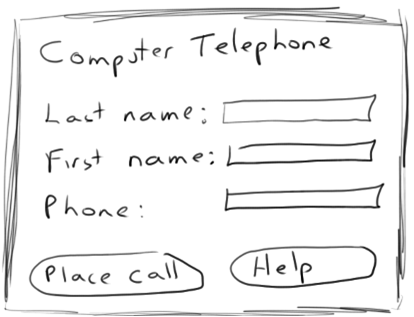 Computer Telephone
Last name:
First name:
Phone:
Place call
Help